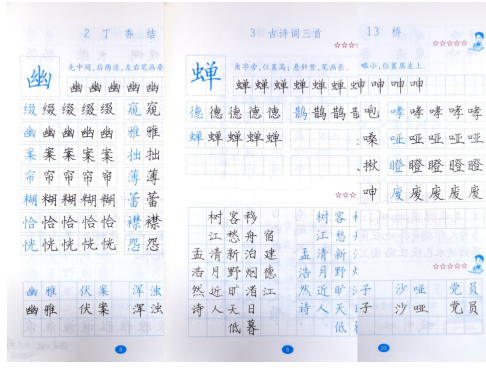 2 丁香结
幽
先中间,后两边,左右笔画要
幽 幽 幽 幽 幽
缀 缀 缀 缀 缀 窥 窥
幽 幽 幽 幽 幽 雅 雅
案 案 案 案 案 拙 拙
帘 帘 帘 帘 帘 薄 薄
糊 糊 糊 糊 糊 蕾 蕾
恰 恰 恰 恰 恰 襟 襟
恍 恍 恍 恍 恍 怨 怨
幽雅 伏案 浑浊
幽雅 伏案 浑浊
3
3 古诗词三首
蝉
虫字旁,位置高;悬针竖,笔画长。
蝉 蝉 蝉 蝉 蝉
德 德 德 德 德 鹊 鹊 鹊
蝉 蝉 蝉 蝉 蝉
树 客 移 树 客
江 愁 舟 宿 江 愁
孟 清 新 泊 建 孟 清 新
浩 月 野 烟 德 浩 月 野
然 近 旷 渚 江 然 近 旷
诗 人 天 日 诗 人 天
低 暮 低
5
13 桥
略小,位置居左上。
呻 呻 呻
咆 哮 哮 哮 哮
嗓 哑 哑 哑 哑
揪 瞪 瞪 瞪 瞪
呻 废 废 废 废
子 沙哑 党员
子 沙哑 党员
23